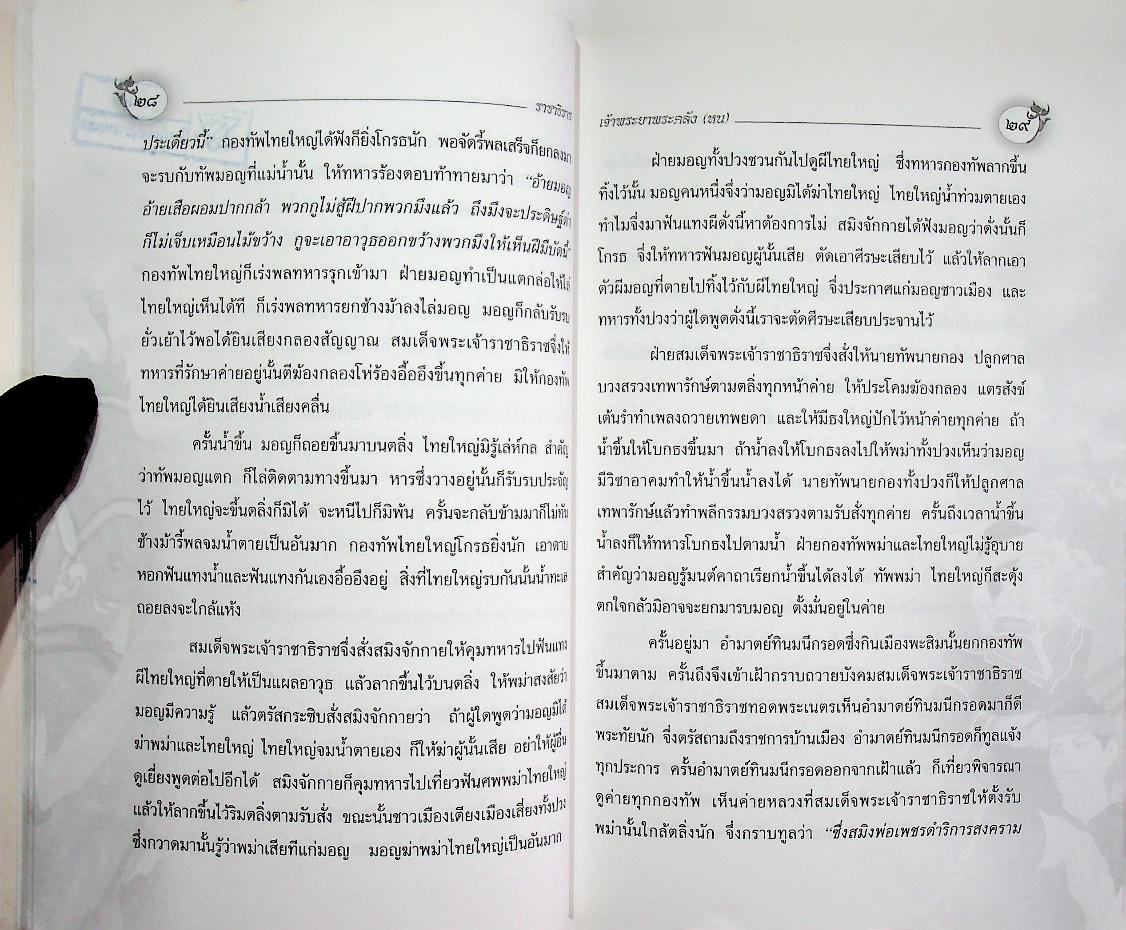 ๒๘
ราชาธิราช
ประเดี๋ยวนี้” กองทัพไทยใหญ่ได้ฟังก็ยิ่งโกรธนัก พอจัดรี้พลเสร็จก็ยกลงมา
จะรบกับทัพมอญที่แม่น้ำนั้น ให้ทหารร้องตอบท้าทายมาว่า “อ้ายมอญ
อ้ายเสือผอมปากกล้า พวกกูไม่สู้ฝีปากพวกมึงแล้ว ถึงมึงจะประดิษฐ์ด่า
ก็ไม่เจ็บเหมือนไม้ขว้าง กูจะเอาอาวุธออกขว้างพวกมึงให้เห็นฝีมือบัดนี้”
กองทัพไทยใหญ่ก็เร่งพลทหารรุกเข้ามา ฝ่ายมอญทำเป็นแตกล่อให้ไล่
ไทยใหญ่เห็นได้ที ก็เร่งพลทหารยกช้างม้าลงไล่มอญ มอญก็กลับรับรบ
ยั่วเย้าไว้พอได้ยินเสียงกลองสัญญาณ สมเด็จพระเจ้าราชาธิราชจึงให้
ทหารที่รักษาค่ายอยู่นั้นตีฆ้องกลองโห่ร้องอื้ออึงขึ้นทุกค่าย มิให้กองทัพ
ไทยใหญ่ได้ยินเสียงน้ำเสียงคลื่น
ครั้นน้ำขึ้น มอญก็ถอยขึ้นมาบนตลิ่ง ไทยใหญ่มิรู้เล่ห์กล สำคัญ
ว่าทัพมอญแตก ก็ไล่ติดตามทางขึ้นมา หารซึ่งวางอยู่นั้นก็รับรบประจัญ
ไว้ ไทยใหญ่จะขึ้นตลิ่งก็มิได้ จะหนีไปก็มิพ้น ครั้นจะกลับข้ามมาก็ไม่ทัน
ช้างม้ารี้พลจมน้ำตายเป็นอันมาก กองทัพไทยใหญ่โกรธยิ่งนัก เอาดาบ
หอกฟันแทงน้ำและฟันแทงกันเองอื้ออึงอยู่ สิ่งที่ไทยใหญ่รบกันนั้นน้ำทะเล
ถอยลงจะใกล้แห้ง
สมเด็จพระเจ้าราชาธิราชจึงสั่งสมิงจักกายให้คุมทหารไปฟันแทง
ผีไทยใหญ่ที่ตายให้เป็นแผลอาวุธ แล้วลากขึ้นไว้บนตลิ่ง ให้พม่าสงสัยว่า
มอญมีความรู้ แล้วตรัสกระซิบสั่งสมิงจักกายว่า ถ้าผู้ใดพูดว่ามอญมิได้
ฆ่าพม่าและไทยใหญ่ ไทยใหญ่จมน้ำตายเอง ก็ให้ฆ่าผู้นั้นเสีย อย่าให้ผู้อื่น
ดูเยี่ยงพูดต่อไปอีกได้ สมิงจักกายก็คุมทหารไปเที่ยวฟันศพพม่าไทยใหญ่
แล้วให้ลากขึ้นไว้ริมตลิ่งตามรับสั่ง ขณะนั้นชาวเมืองเตียงเมืองเสี่ยงทั้งปวง
ซึ่งกวาดมานั้นรู้ว่าพม่าเสียทีแก่มอญ มอญฆ่าพม่าไทยใหญ่เป็นอันมาก
เจ้าพระยาพระคลัง (หน)
๒๙
ฝ่ายมอญทั้งปวงชวนกันไปดูผีไทยใหญ่ ซึ่งทหารกองทัพลากขึ้น
ทิ้งไว้นั้น มอญคนหนึ่งจึ่งว่ามอญมิได้ฆ่าไทยใหญ่ ไทยใหญ่น้ำท่วมตายเอง
ทำไมจึ่งมาฟันแทงผีดั่งนี้หาต้องการไม่ สมิงจักกายได้ฟังมอญว่าดั่งนั้นก็
โกรธ จึ่งให้ทหารฟันมอญผู้นั้นเสีย ตัดเอาศีรษะเสียบไว้ แล้วให้ลากเอา
ตัวผีมอญที่ตายไปทิ้งไว้กับผีไทยใหญ่ จึ่งประกาศแก่มอญชาวเมือง และ
ทหารทั้งปวงว่าผู้ใดพูดดั่งนี้เราจะตัดศีรษะเสียบประจานไว้
ฝ่ายสมเด็จพระเจ้าราชาธิราชจึ่งสั่งให้นายทัพนายกอง ปลูกศาล
บวงสรวงเทพารักษ์ตามตลิ่งทุกหน้าค่าย ให้ประโคมฆ้องกลอง แตรสังข์
เต้นรำทำเพลงถวายเทพยดา และให้มีธงใหญ่ปักไว้หน้าค่ายทุกค่าย ถ้า
น้ำขึ้นให้โบกธงขึ้นมา ถ้าน้ำลงให้โบกธงลงไปให้พม่าทั้งปวงเห็นว่ามอญ
มีวิชาอาคมทำให้น้ำขึ้นน้ำลงได้ นายทัพนายกองทั้งปวงก็ให้ปลูกศาล
เทพารักษ์แล้วทำพลีกรรมบวงสรวงตามรับสั่งทุกค่าย ครั้นถึงเวลาน้ำขึ้น
น้ำลงก็ให้ทหารโบกธงไปตามน้ำ ฝ่ายกองทัพพม่าและไทยใหญ่ไม่รู้อุบาย
สำคัญว่ามอญรู้มนต์คาถาเรียกน้ำขึ้นได้ลงได้ ทัพพม่า ไทยใหญ่ก็สะดุ้ง
ตกใจกลัวมิอาจจะยกมารบมอญ ตั้งมั่นอยู่ในค่าย
ครั้นอยู่มา อำมาตย์ทินมนีกรอดซึ่งกินเมืองพะสิมนั้นยกกองทัพ
ขึ้นมาตาม ครั้นถึงจึงเข้าเฝ้ากราบถวายบังคมสมเด็จพระเจ้าราชาธิราช
สมเด็จพระเจ้าราชาธิราชทอดพระเนตรเห็นอำมาตย์ทินมนีกรอดมาก็ดี
พระทัยนัก จึ่งตรัสถามถึงราชการบ้านเมือง อำมาตย์ทินมนีกรอดก็ทูลแจ้ง
ทุกประการ ครั้นอำมาตย์ทินมนีกรอดออกจากเฝ้าแล้ว ก็เที่ยวพิจารณา
ดูค่ายทุกกองทัพ เห็นค่ายหลวงที่สมเด็จพระเจ้าราชาธิราชให้ตั้งรับ
พม่านั้นใกล้ตลิ่งนัก จึ่งกราบทูลว่า “ซึ่งสมิงพ่อเพชรดำริการสงคราม